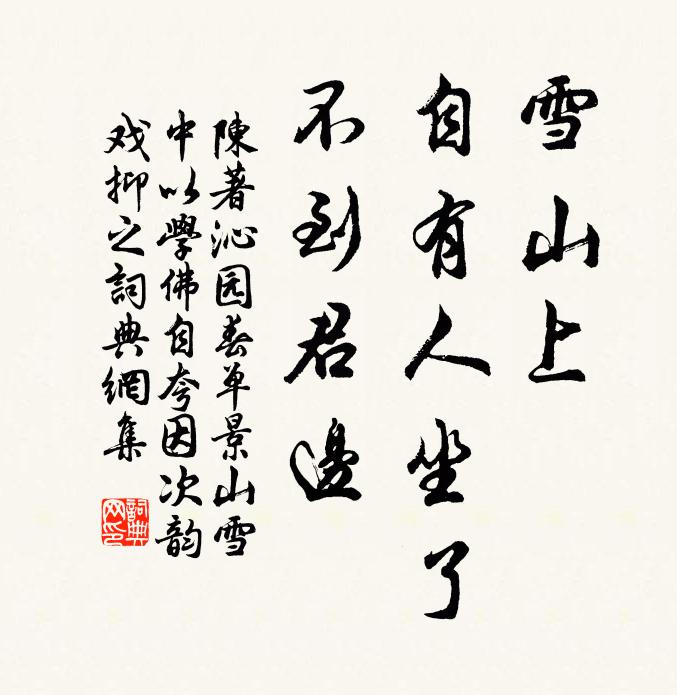 雪山上
自有人坐了
不到君邊
陳著沁园春单景山雪
中以學佛自夸因次韵
戏抑之詞典網集
詞典
网印